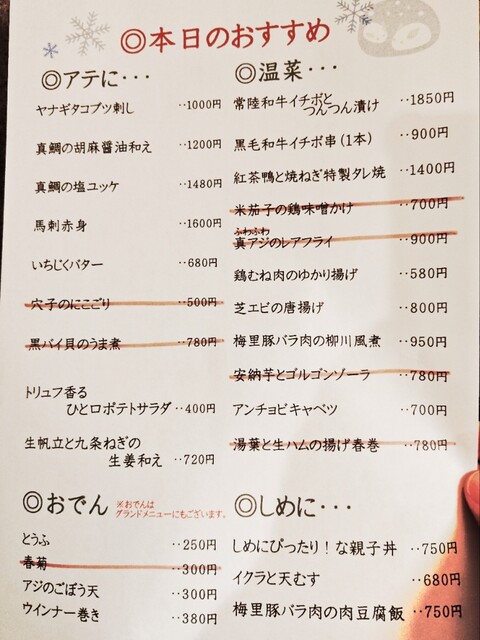 ◎本日のおすすめ
◎アテに・・・
ヤナギタコブツ刺し ‥1000円
真鯛の胡麻醤油和え ‥1200円
真鯛の塩ユッケ ‥1480円
馬刺赤身 ‥1600円
いちじくバター ‥680円
穴子のにこごり ‥500円
黒バイ貝のうま煮 ‥780円
トリュフ香る
ひと口ポテトサラダ ‥400円
生帆立と九条ねぎの
生姜和え ‥720円
◎おでん ※おでんは
グランドメニューにもございます。
とうふ ‥250円
春菊 ‥300円
アジのごぼう天 ‥300円
ウインナー巻き ‥380円
◎温菜・・・
常陸和牛イチボと
つんつん漬け ‥1850円
黒毛和牛イチボ串(1本) ‥900円
紅茶鴨と焼ねぎ特製タレ焼 ‥1400円
米茄子の鶏味噌かけ ‥700円
ふわふわ
真アジのレアフライ ‥900円
鶏むね肉のゆかり揚げ ‥580円
芝エビの唐揚げ ‥800円
梅里豚バラ肉の柳川風煮 ‥950円
安納芋とゴルゴンゾーラ ‥780円
アンチョビキャベツ ‥700円
湯葉と生ハムの揚げ春巻 ‥780円
◎しめに・・・
しめにぴったり!な親子丼 ‥750円
イクラと天むす ‥680円
梅里豚バラ肉の肉豆腐飯 ‥750円